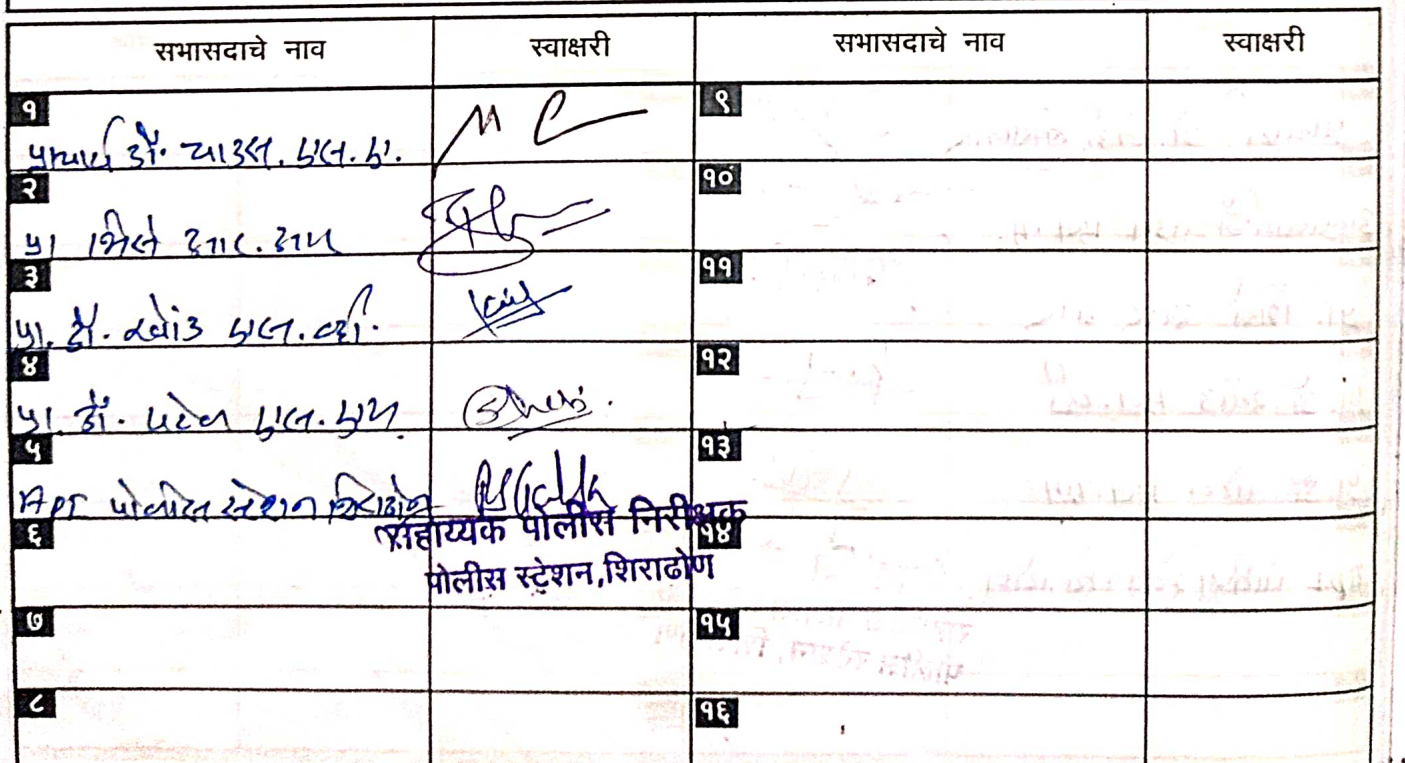 सभासदाचे नाव स्वाक्षरी सभासदाचे नाव स्वाक्षरी
१ ९
प्राचार्य डॉ. चाउस. एल. ए.
२ १०
प्रा भिसे आर. आय
३ ११
प्रा. डॉ. एल. व्ही.
४ १२
प्रा. डॉ. पटेल एल. एम.
५ १३
API पोलीस स्टेशन शिराढोण
सहाय्यक पोलीस निरीक्षक
६ १४
पोलीस स्टेशन,शिराढोण
७ १५
८ १६